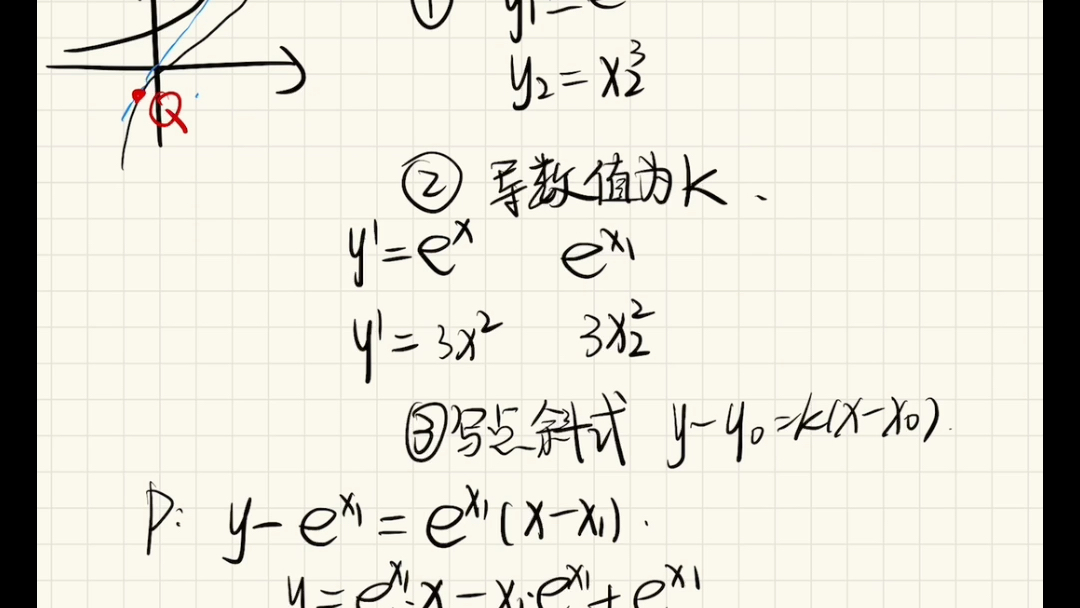 ① y₁=e
y₂=x₂³
Q
② 导数值为k、
y'=eˣ e^x₁
y'=3x² 3x₂²
③写点斜式 y-y₀=k(x-x₀).
P: y-e^x₁=e^x₁(x-x₁).
y=e^x₁·x-x₁·e^x₁+e^x₁